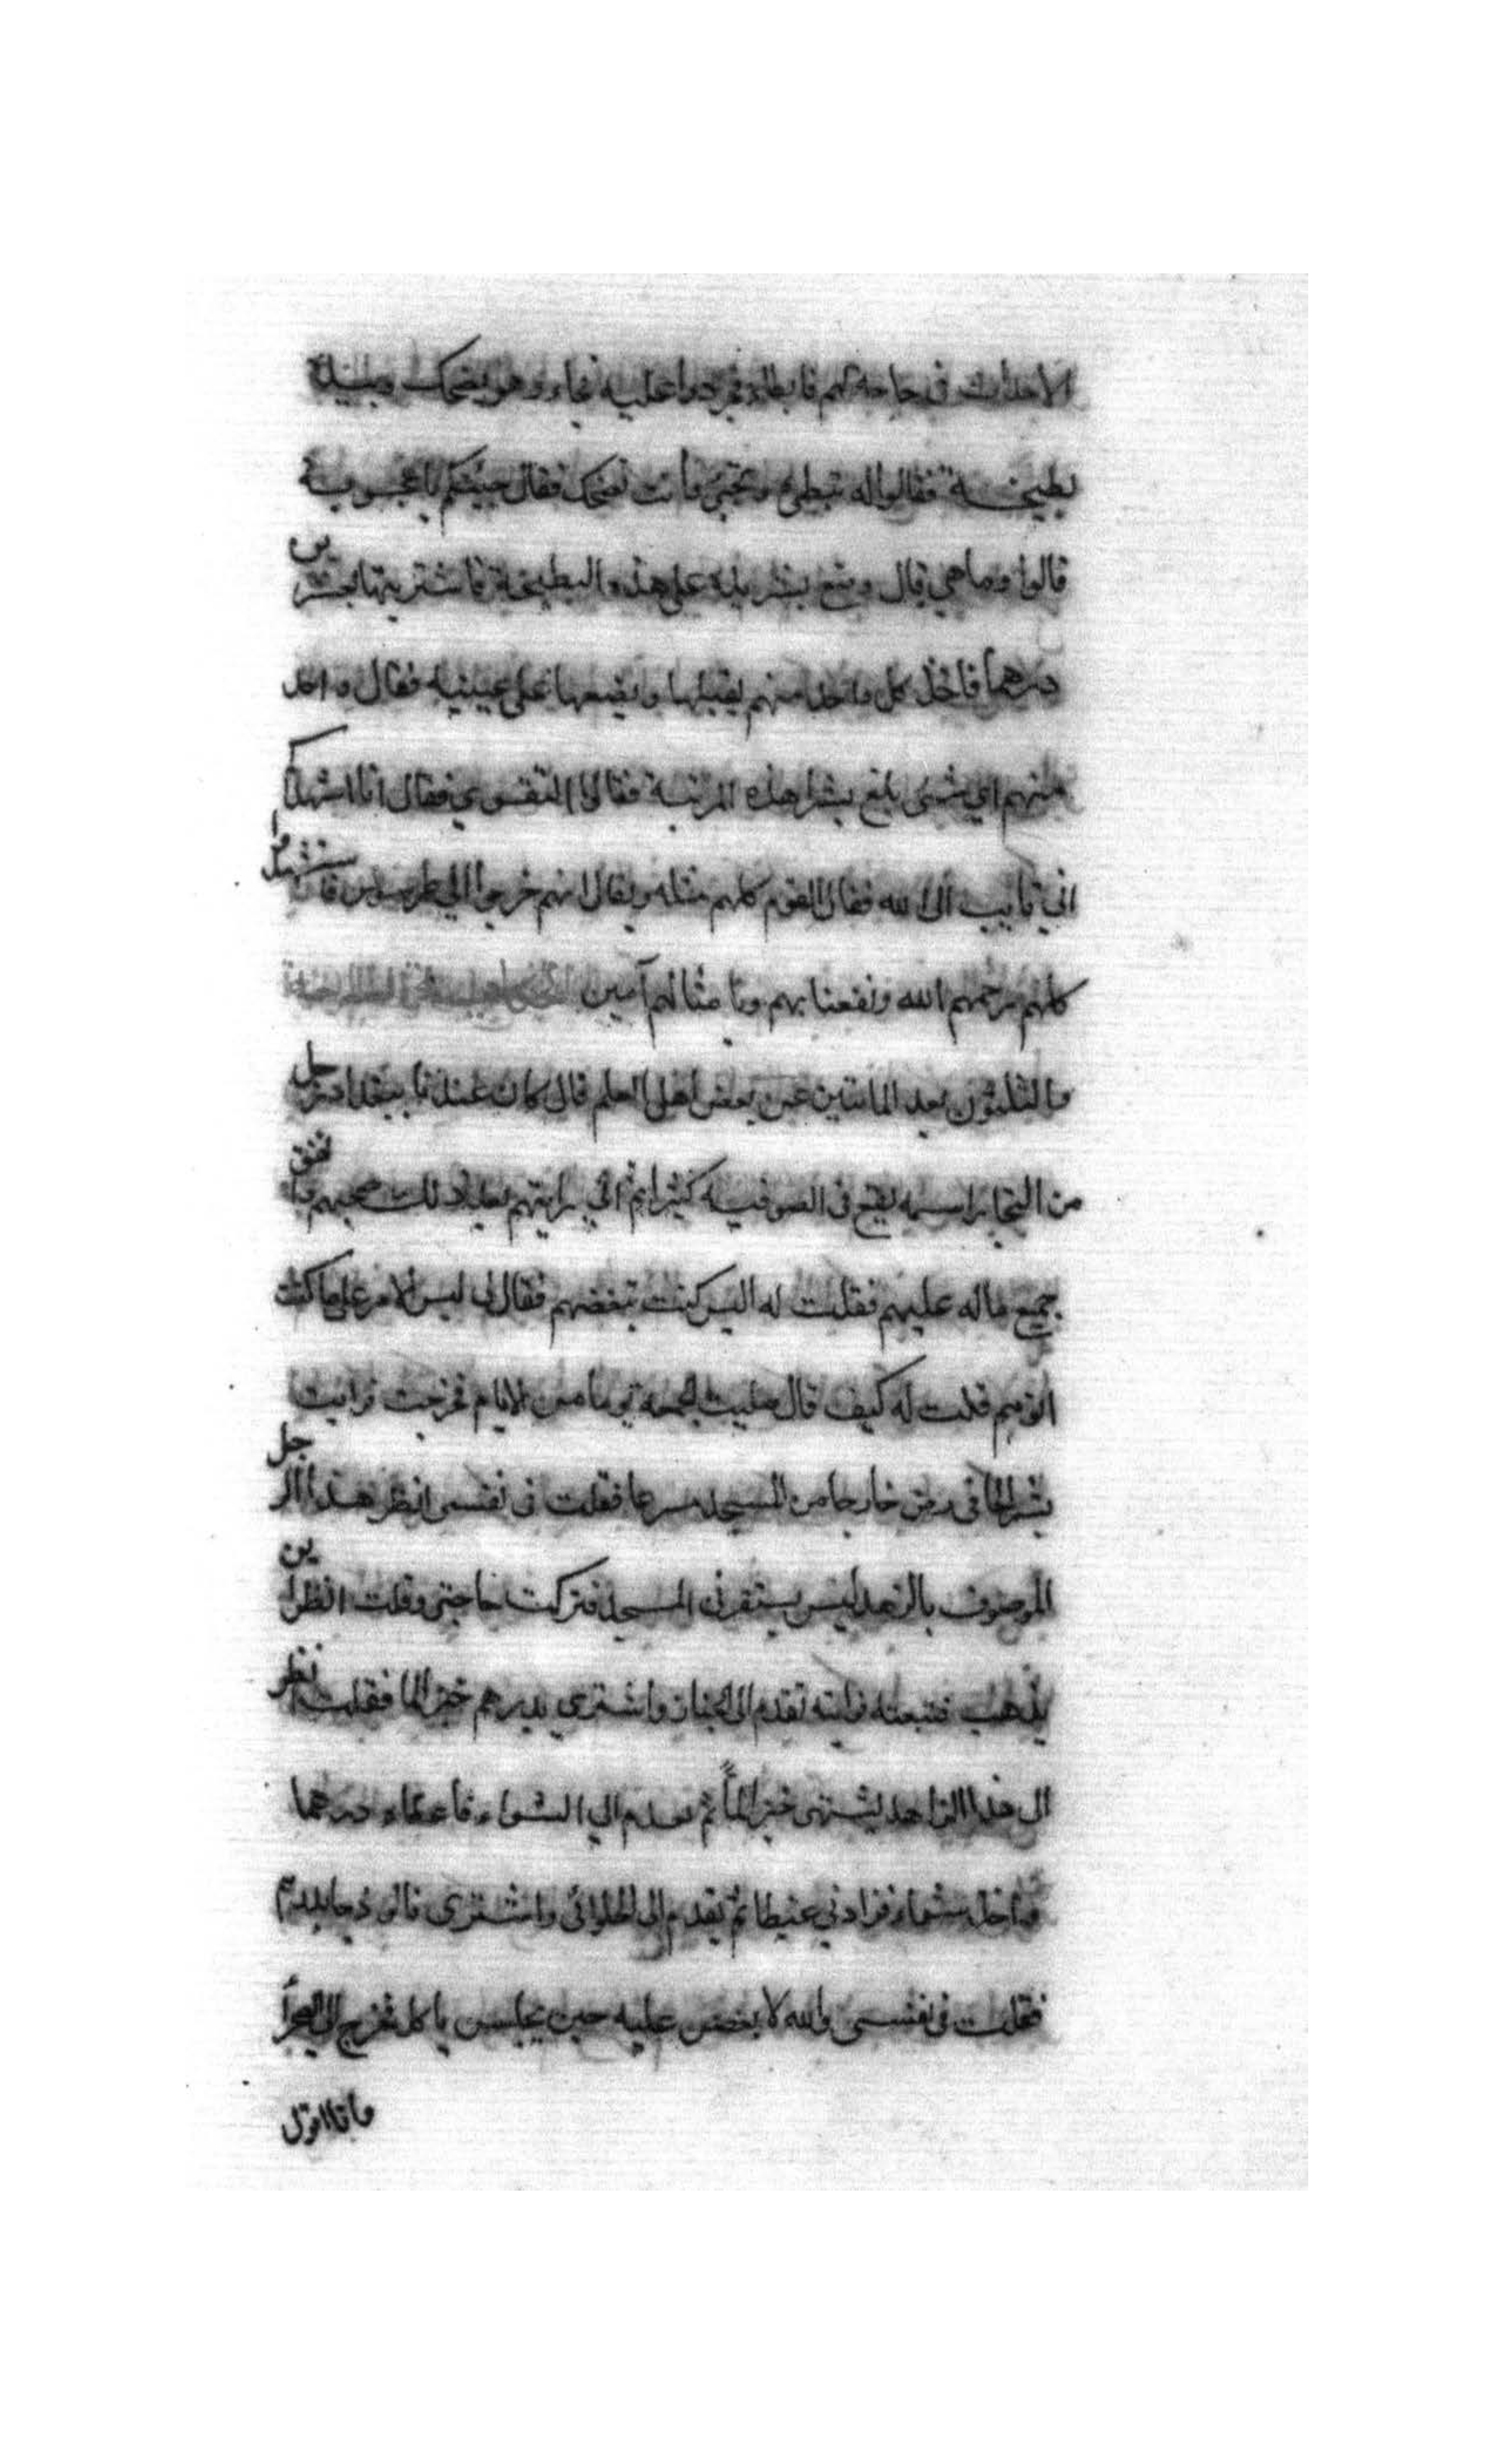 الاحداث في حاجة لهم فابطا فحردوا عليه فجاء وهو يضحك وبيده
بطيخة فقالوا له تبطئ وتجئ وانت تضحك فقال جيتكم باعجوبة
قالوا وما هي قال وضع بشر يده على هذه البطيخة فاشتريتها بعشرين
درهما فاخذ كل واحد منهم يقبلها ويضعها على عينيه فقال واحد
منهم اي شيئ بلغ بشرا هذه المرتبة فقالوا التقوي فقال انا اشهدكم
اني تايب الى الله فقال القوم كلهم مثله ويقال انهم خرجوا الي طرسوس فاستشهدوا
كلهم رحمهم الله ونفعنا بهم وبامثالهم آمين
والثلثون بعد المائتين عن بعض اهل العلم قال كان عندنا ببغداد رجل
من التجار اسمه يقع في الصوفيه كثيرا ثم اني رايتهم بعد ذلك صحبهم وانفق
جميع ماله عليهم فقلت له اليس كنت تبغضهم فقال لي ليس الامر على ما كنت
اتوهم قلت له كيف قال صليت الجمعة يوما من الايام فخرجت فرايت
بشر الحافي رضي خارجا من المسجد مسرعا فقلت في نفسي انظر هذا الرجل
الموصوف بالزهد ليس يستقر في المسجد فتركت حاجتي وقلت انظر اين
يذهب فتبعته فرايته تقدم الى الخباز واشتري بدرهم خبز الما فقلت انظر
الى هذا الزاهد يشتهى خبز الماً ثم تقدم الي الشواء فاعطاه درهما
واخذ شواء فزادني غيظا ثم تقدم الى الحلوائي واشترى فالوذجا بدرهم
فقلت في نفسي والله لا نغصن عليه حين يجلس ياكل فخرج الى الصحرا
وانا اقول